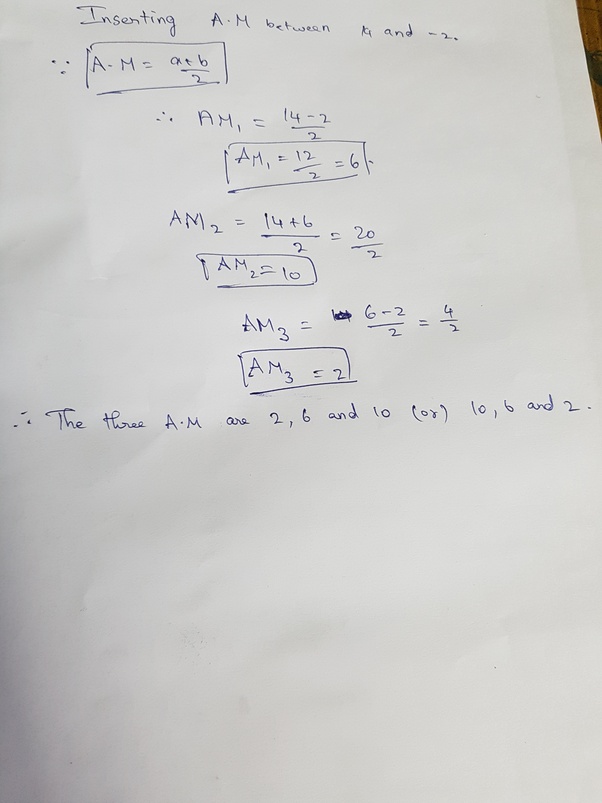 Inserting A.M between 14 and -2.
∵ A.M = a+b/2
∴ AM₁ = 14-2/2
AM₁ = 12/2 = 6.
AM₂ = 14+6/2 = 20/2
AM₂ = 10
AM₃ = 6-2/2 = 4/2
AM₃ = 2
∴ The three A.M are 2, 6 and 10 (or) 10, 6 and 2.